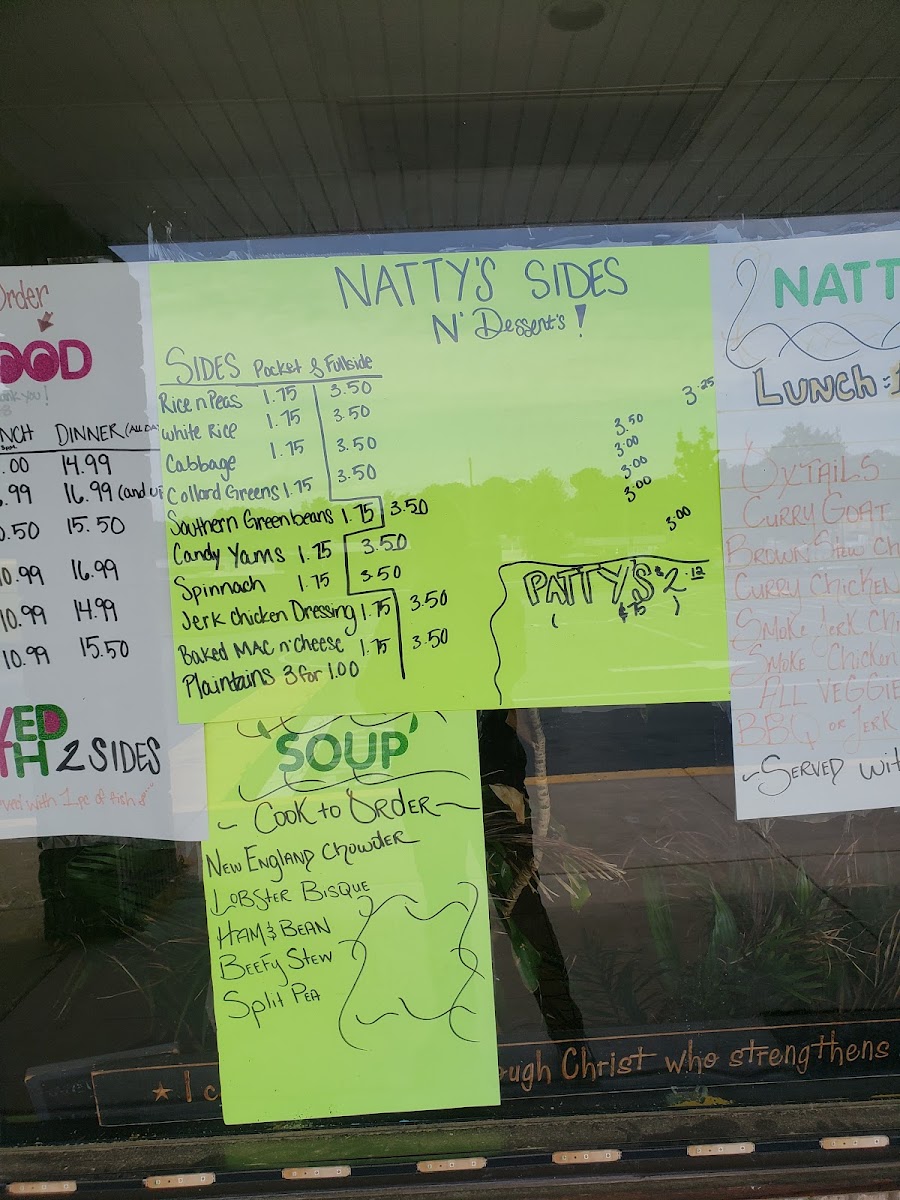 Order
OOD
NCH DINNER (ALL DA
.00 14.99
.99 16.99 (and up
0.50 15.50
10.99 16.99
10.99 14.99
10.99 15.50
VED
TH 2 SIDES
rved with 1 pc of fish &
NATTY'S SIDES
N' Dessert's!
SIDES Pocket & Fullside
Rice n Peas 1.75 3.50
White Rice 1.75 3.50
Cabbage 1.75 3.50
Collard Greens 1.75 3.50
Southern Greenbeans 1.75 3.50
Candy Yams 1.75 3.50
Spinnach 1.75 3.50
Jerk Chicken Dressing 1.75 3.50
Baked MAC n' Cheese 1.75 3.50
Plaintains 3 for 1.00
3.25
3.50
3.00
3.00
3.00
3.00
PATTY'S $2.12
SOUP
~ COOK to ORDER ~
NEW ENGLAND CHOWDER
LOBSTER BISQUE
HAM & BEAN
BEEFY STEW
Split PEA
NATT
LUNCH:
OXTAILS
CURRY GOAT
BROWN STEW CH
CURRY CHICKEN
SMOKE JERK CHI
SMOKE CHICKEN
ALL VEGGIE
BBQ OR JERK
~SERVED WIT
I c
ough Christ who strengthens